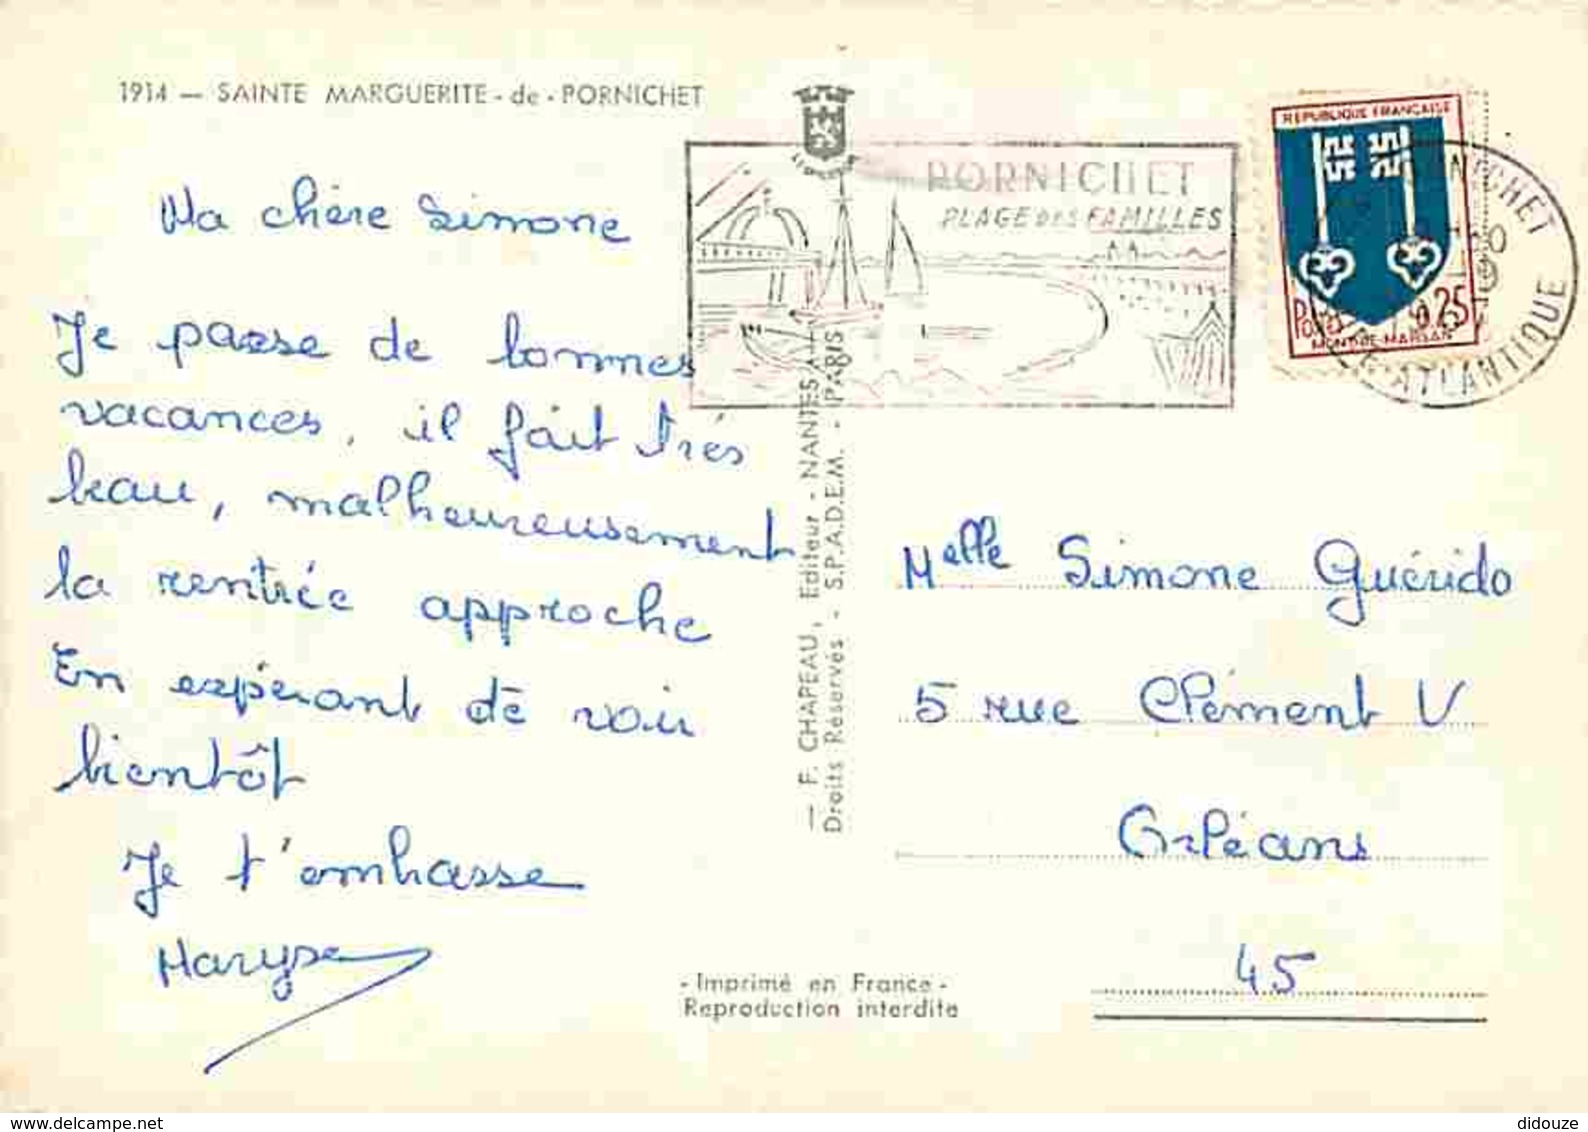 1914 — SAINTE MARGUERITE - de - PORNICHET
Ma chère Simone
Je passe de bonnes
vacances, il fait très
beau, malheureusement
la rentrée approche
En espérant de voir
bientôt
Je t'embrasse
Maryse
— F. CHAPEAU, Editeur - NANTES
Droits Réservés - S.P.A.D.E.M. - PARIS
- Imprimé en France -
Reproduction interdite
PORNICHET
PLAGE DES FAMILLES
REPUBLIQUE FRANÇAISE
Postes 0,25
MONT-DE-MARSAN
NICHET
ATLANTIQUE
Melle Simone Guérido
5 rue Clément V
Orléans
45
www.delcampe.net
didouze